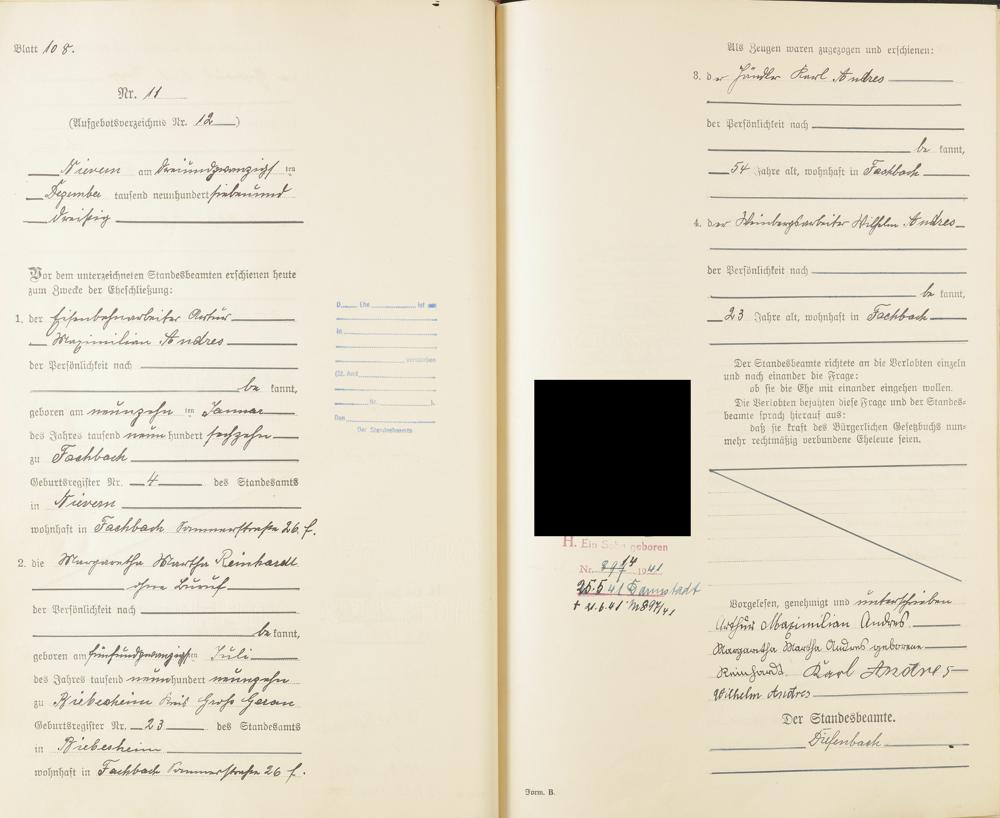 Blatt 108.
Nr. 11
(Aufgebotsverzeichnis Nr. 12)
Nievern am dreiundzwanzigsten
Dezember tausend neunhundert siebenund
dreißig
Vor dem unterzeichneten Standesbeamten erschienen heute
zum Zwecke der Eheschließung:
1. der Eisenbahnarbeiter Artur
Maximilian Andres
der Persönlichkeit nach
be kannt,
geboren am neunzehn ten Januar
des Jahres tausend neun hundert sechzehn
zu Fachbach
Geburtsregister Nr. 4 des Standesamts
in Nievern
wohnhaft in Fachbach Sommerstraße 26 f.
2. die Margaretha Martha Reinhardt
ohne Beruf
der Persönlichkeit nach
be kannt,
geboren am fünfundzwanzigsten Juli
des Jahres tausend neunhundert neunzehn
zu Biebesheim Kreis Groß Gerau
Geburtsregister Nr. 23 des Standesamts
in Biebesheim
wohnhaft in Fachbach Sommerstraße 26 f.
D. Ehe ist am
in
verstorben
(St. Amt
Nr. ).
Den
Der Standesbeamte
H. Ein Sohn geboren
Nr. 1941
25.5.41 Darmstadt
Als Zeugen waren zugezogen und erschienen:
3. der Händler Karl Andres
der Persönlichkeit nach
be kannt,
54 Jahre alt, wohnhaft in Fachbach
4. der Weinbergsarbeiter Wilhelm Andres
der Persönlichkeit nach
be kannt,
23 Jahre alt, wohnhaft in Fachbach
Der Standesbeamte richtete an die Verlobten einzeln
und nach einander die Frage:
ob sie die Ehe mit einander eingehen wollen.
Die Verlobten bejahten diese Frage und der Standes-
beamte sprach hierauf aus:
daß sie kraft des Bürgerlichen Gesetzbuchs nun-
mehr rechtmäßig verbundene Eheleute seien.
Vorgelesen, genehmigt und unterschrieben
Arthur Maximilian Andres
Margaretha Martha Andres geborene
Reinhardt. Karl Andres
Wilhelm Andres
Der Standesbeamte.
Diefenbach
Form. B.